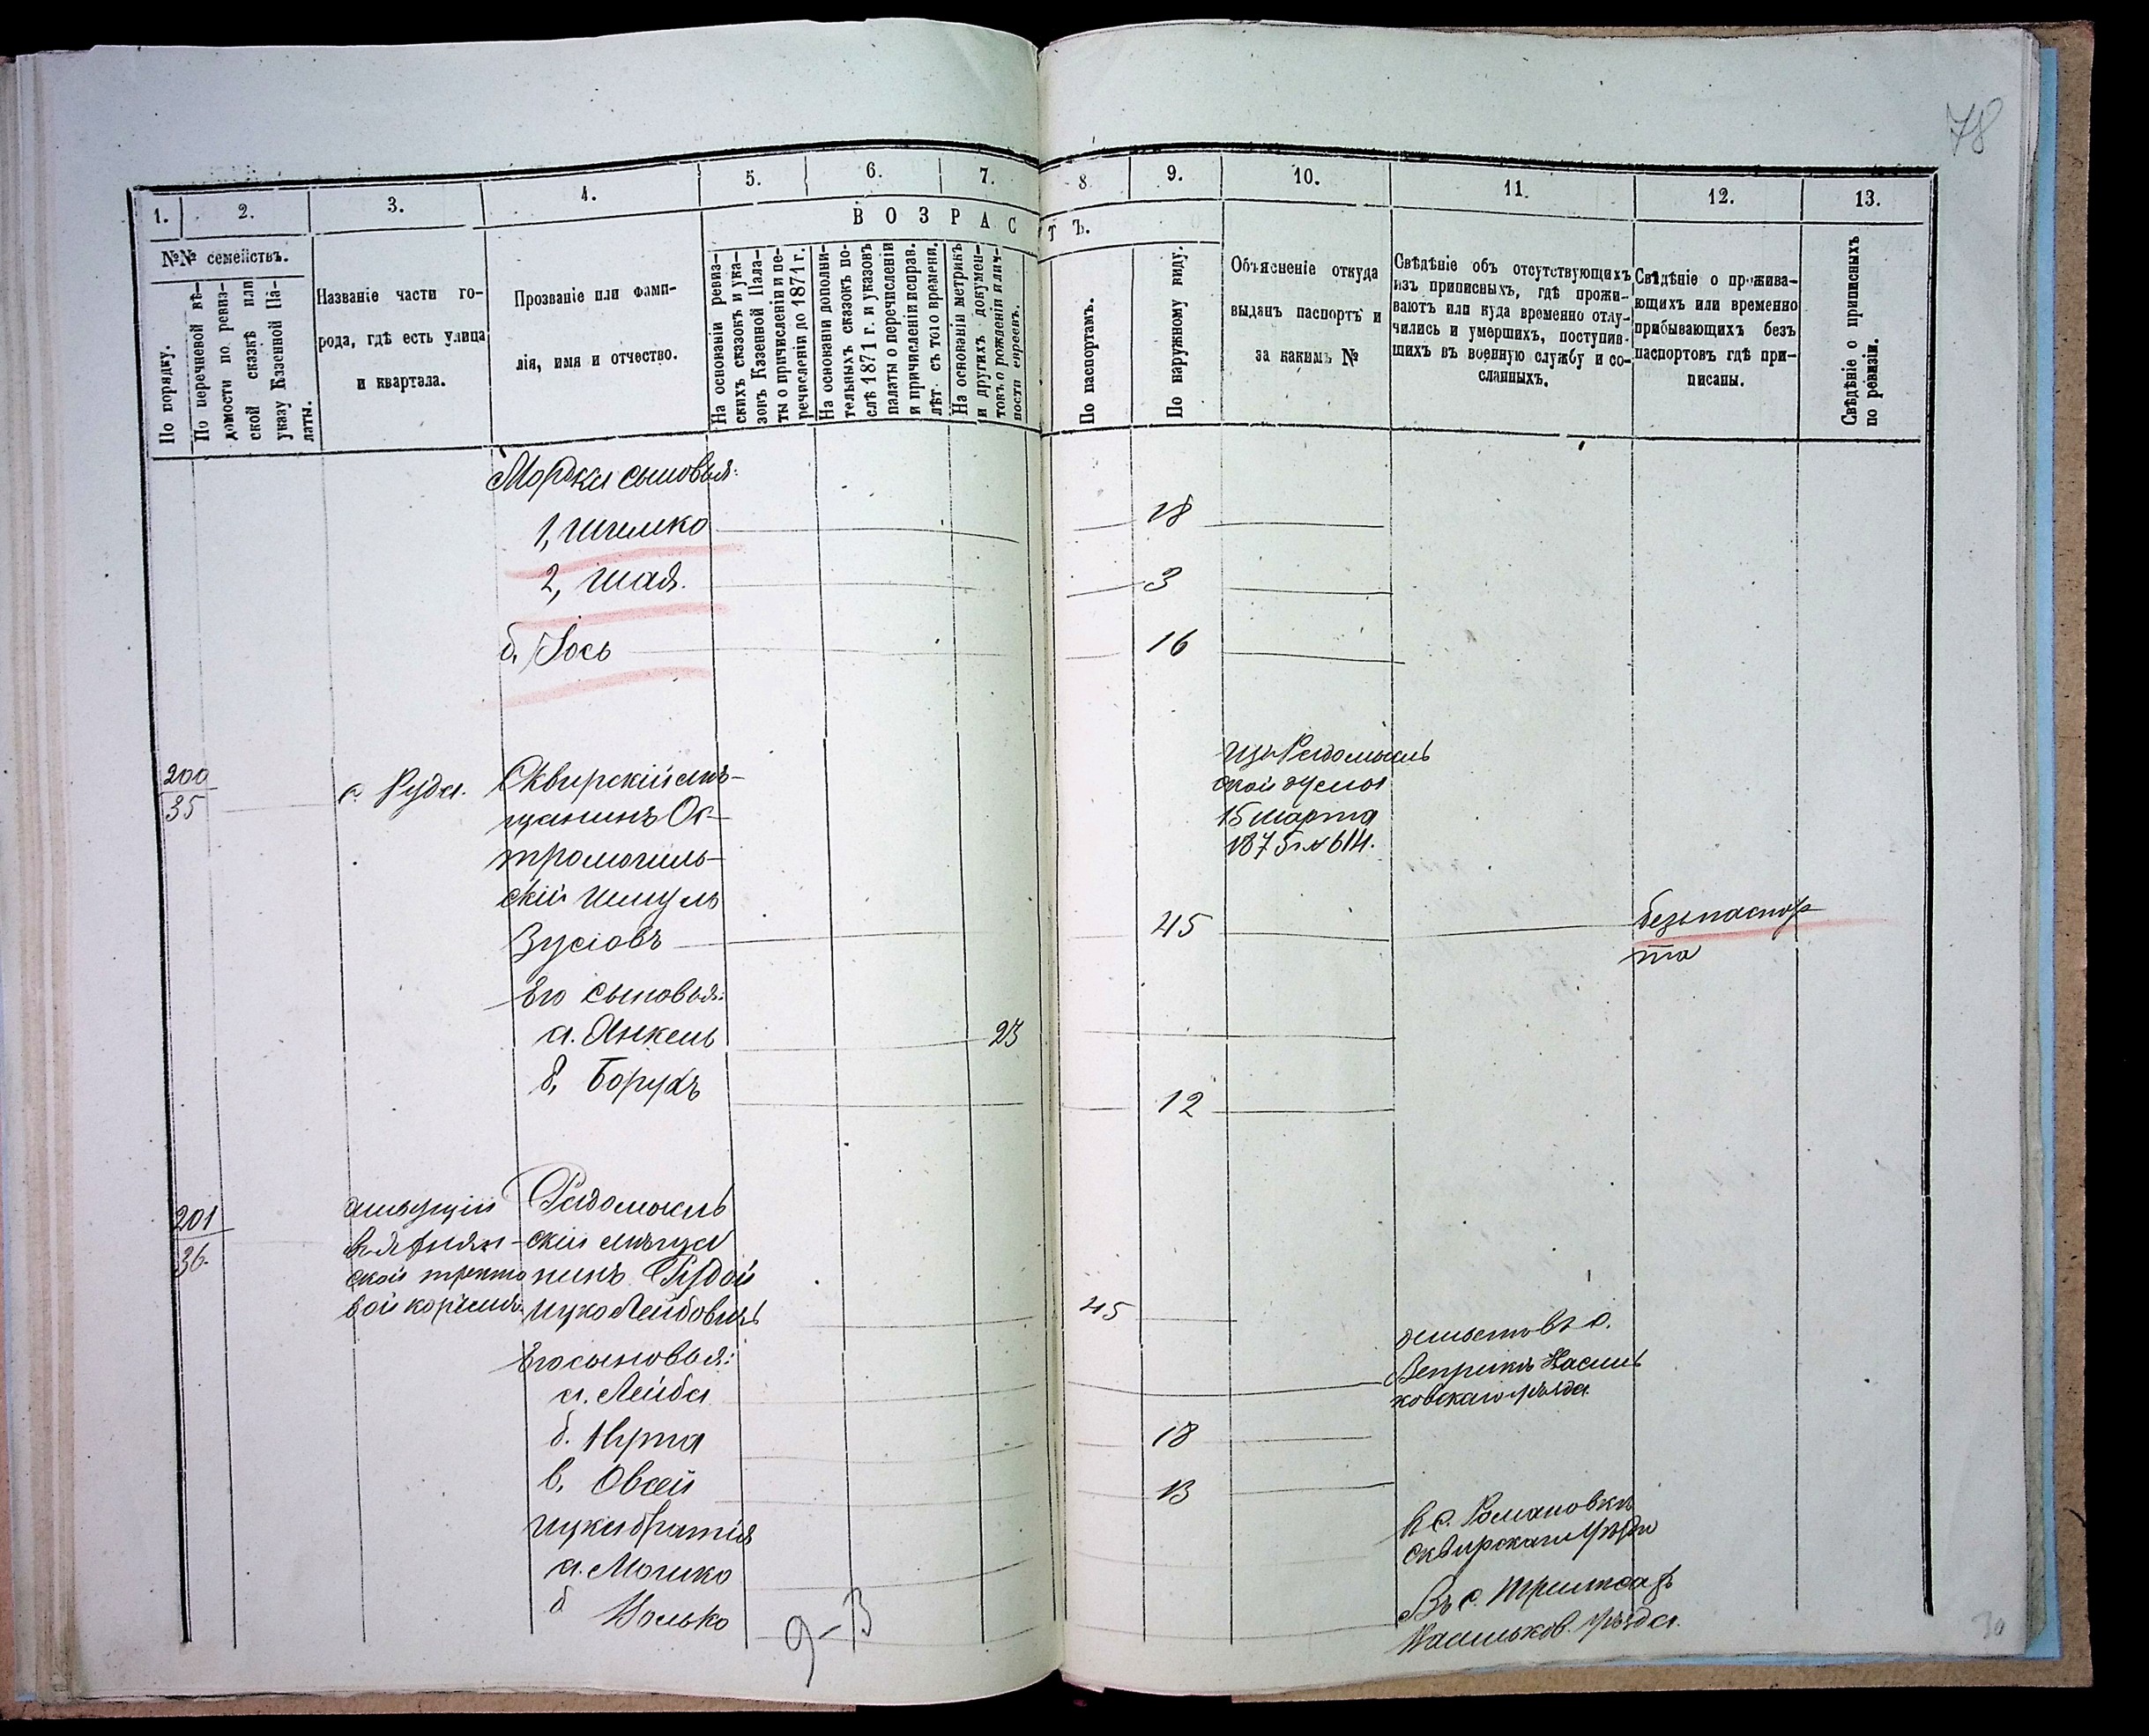 78
1. 2. 3. 4. 5. 6. 7. 8 9. 10. 11. 12. 13.
№№ семействъ.
ВОЗРАСТЪ.
По порядку.
По перечневой вѣ-
домости по ревиз-
ской сказкѣ или
указу Казенной Па-
латы.
Названіе части го-
рода, гдѣ есть улица
и квартала.
Прозваніе или фами-
лія, имя и отчество.
На основаніи ревиз-
скихъ сказокъ и ука-
зовъ Казенной Пала-
ты о причисленіи и пе-
речисленіи до 1871 г.
На основаніи дополни-
тельныхъ сказокъ по-
слѣ 1871 г. и указовъ
палаты о перечисленіи
и причисленіи исправ.
лѣт. съ того времени.
На основаніи метрикъ
и другихъ докумен-
товъ о рожденіи и лич-
ности евреевъ.
По паспортамъ.
По наружному виду.
Объясненіе откуда
выданъ паспортъ и
за какимъ №
Свѣдѣніе объ отсутствующихъ
изъ приписныхъ, гдѣ прожи-
ваютъ или куда временно отлу-
чились и умершихъ, поступив-
шихъ въ военную службу и со-
сланныхъ.
Свѣдѣніе о прожива-
ющихъ или временно
прибывающихъ безъ
паспортовъ гдѣ при-
писаны.
Свѣдѣніе о приписныхъ
по ревизіи.
Мордка сыновья:
1, Шлемко 18
2, Шая. 3
б, Іось 16
200
35
с. Руда.
Сквирскій мѣ-
щанинъ Ос-
тромогиль-
скій Шмуль
Зусіовъ 45
Изъ Радомысль
ской думы
15 марта
1875 г. № 614.
безъ паспор
та
Его сыновья:
а. Янкель 23
б, Борухъ 12
201
36.
Радомысль
скій мѣща
нинъ Рудой
Ицко Лейбовичъ 45
ской тракто
вой корчмѣ
Его сыновья:
а. Лейба
с.
Веприкъ Василь
ковскаго уѣзда
б. Нута 18
в, Овсей 13
Ицка братія
а. Мошко
с. Романовкѣ
Сквирскаго уѣзда
б Волько
Въ с. Трилѣсахъ
Васильков. уѣзда.
9-В
30